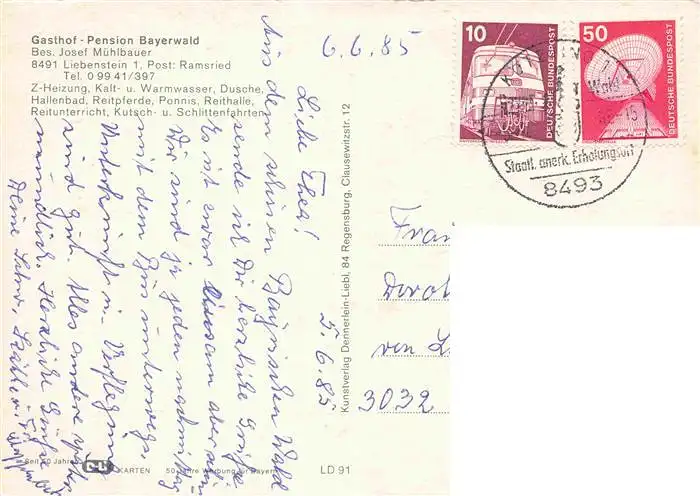 Gasthof - Pension Bayerwald
Bes. Josef Mühlbauer
8491 Liebenstein 1, Post: Ramsried
Tel. 0 99 41/397
Z-Heizung, Kalt- u. Warmwasser, Dusche,
Hallenbad, Reitpferde, Ponnis, Reithalle,
Reitunterricht, Kutsch- u. Schlittenfahrten
6.6.85
5.6.85
Liebe Thea!
Aus dem schönen Bayrischen Wald
sende ich Dir herzliche Grüße
Es ist zwar einsam aber
Wir sind ja jeden nachmittag
mit dem Bus unterwegs.
Unterkunft u. Verpflegung
sind gut. Alles andere später
mündlich. Herzliche Grüße
Deine
Kunstverlag Dennerlein-Liebl, 84 Regensburg, Clausewitzstr. 12
10
DEUTSCHE BUNDESPOST
50
DEUTSCHE BUNDESPOST
Wald
-15
Staatl. anerk. Erholungsort
8493
Frau
von
3032
Seit 50 Jahren
KARTEN
50 Jahre Werbung für Bayern
LD 91